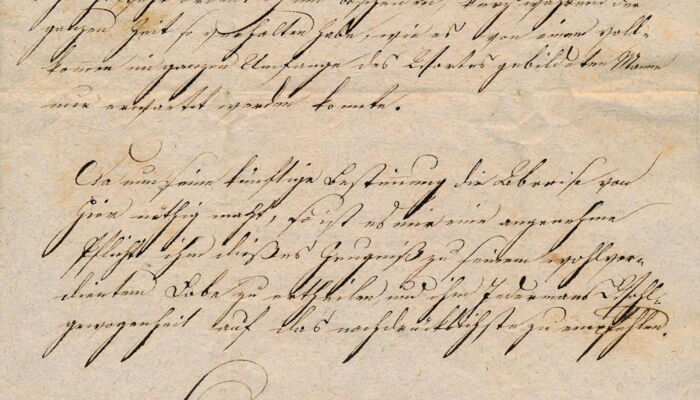 ganzen Zeit so verhalten habe, wie es von einem voll-
komen im ganzen Umfange des Wortes gebildeten Manne
nur erwartet werden konnte.
Da nun seine künftige Bestimung die Abreise von
hier nöthig macht, so ist es mir eine angenehme
Pflicht ihm dieses Zeugniß zu seinem wohlver-
dientem Lobe zu ertheilen und ihn Jedermans Wohl-
gewogenheit auf das nachdrücklichste zu empfehlen.